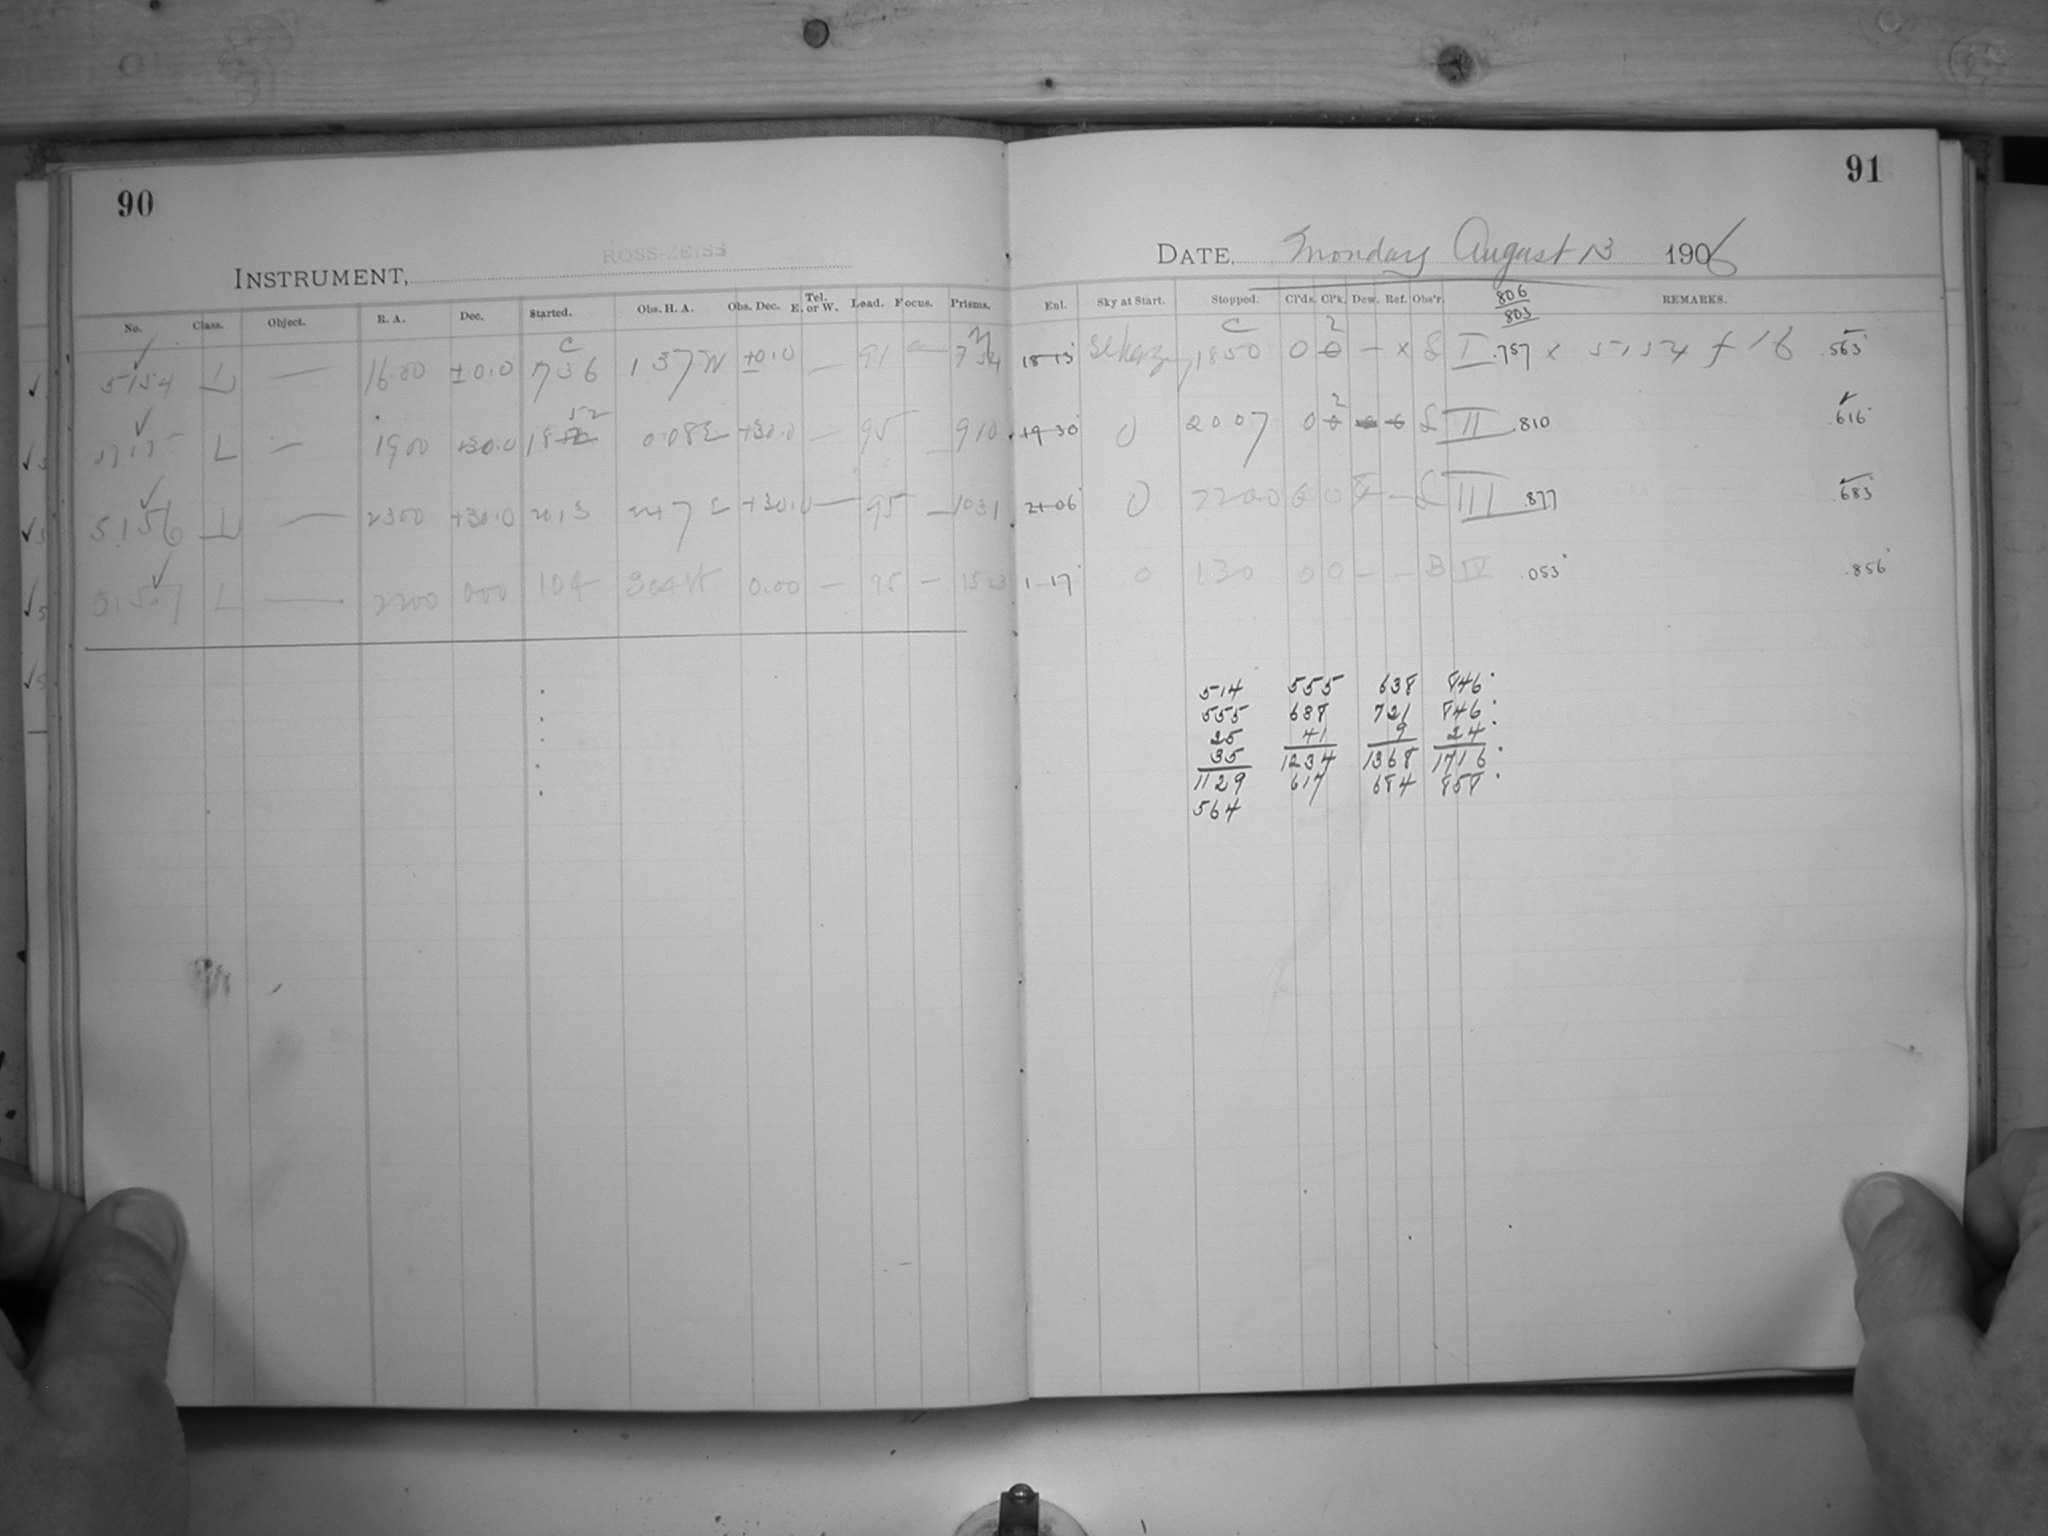 90
91
ROSS-ZEISS
INSTRUMENT,
DATE, Monday August 13 1906
No. Class. Object. R. A. Dec. Started. Obs. H. A. Obs. Dec. Tel. E. or W. Load. Focus. Prisms. Enl. Sky at Start. Stopped. Cl'ds. Cl'k. Dew. Ref. Obs'r. 806 803 REMARKS.
5154 L — 16.00 ±0.0 736 1 37 W ±0.0 — 91 — 18-13 1850 0 2 — x I .757 x 5154 f 16 .563
L — 1900 +30.0 18 52 0.08 E +30.0 — 95 910 19-30 0 2007 0 2 II .810 .616
5156 L — 2300 +30.0 2013 247 E +30.0 — 95 — 1031 21-06 0 2200 0 0 — III .877 .683
5157 L — 2200 000 104 0.00 — 95 — 1523 1-17 0 130 0 0 — — B IV .053 .856
514 555 638 846
555 638 721 846
25 41 9 24
35 1234 1368 1716
1129 617 684 858
564